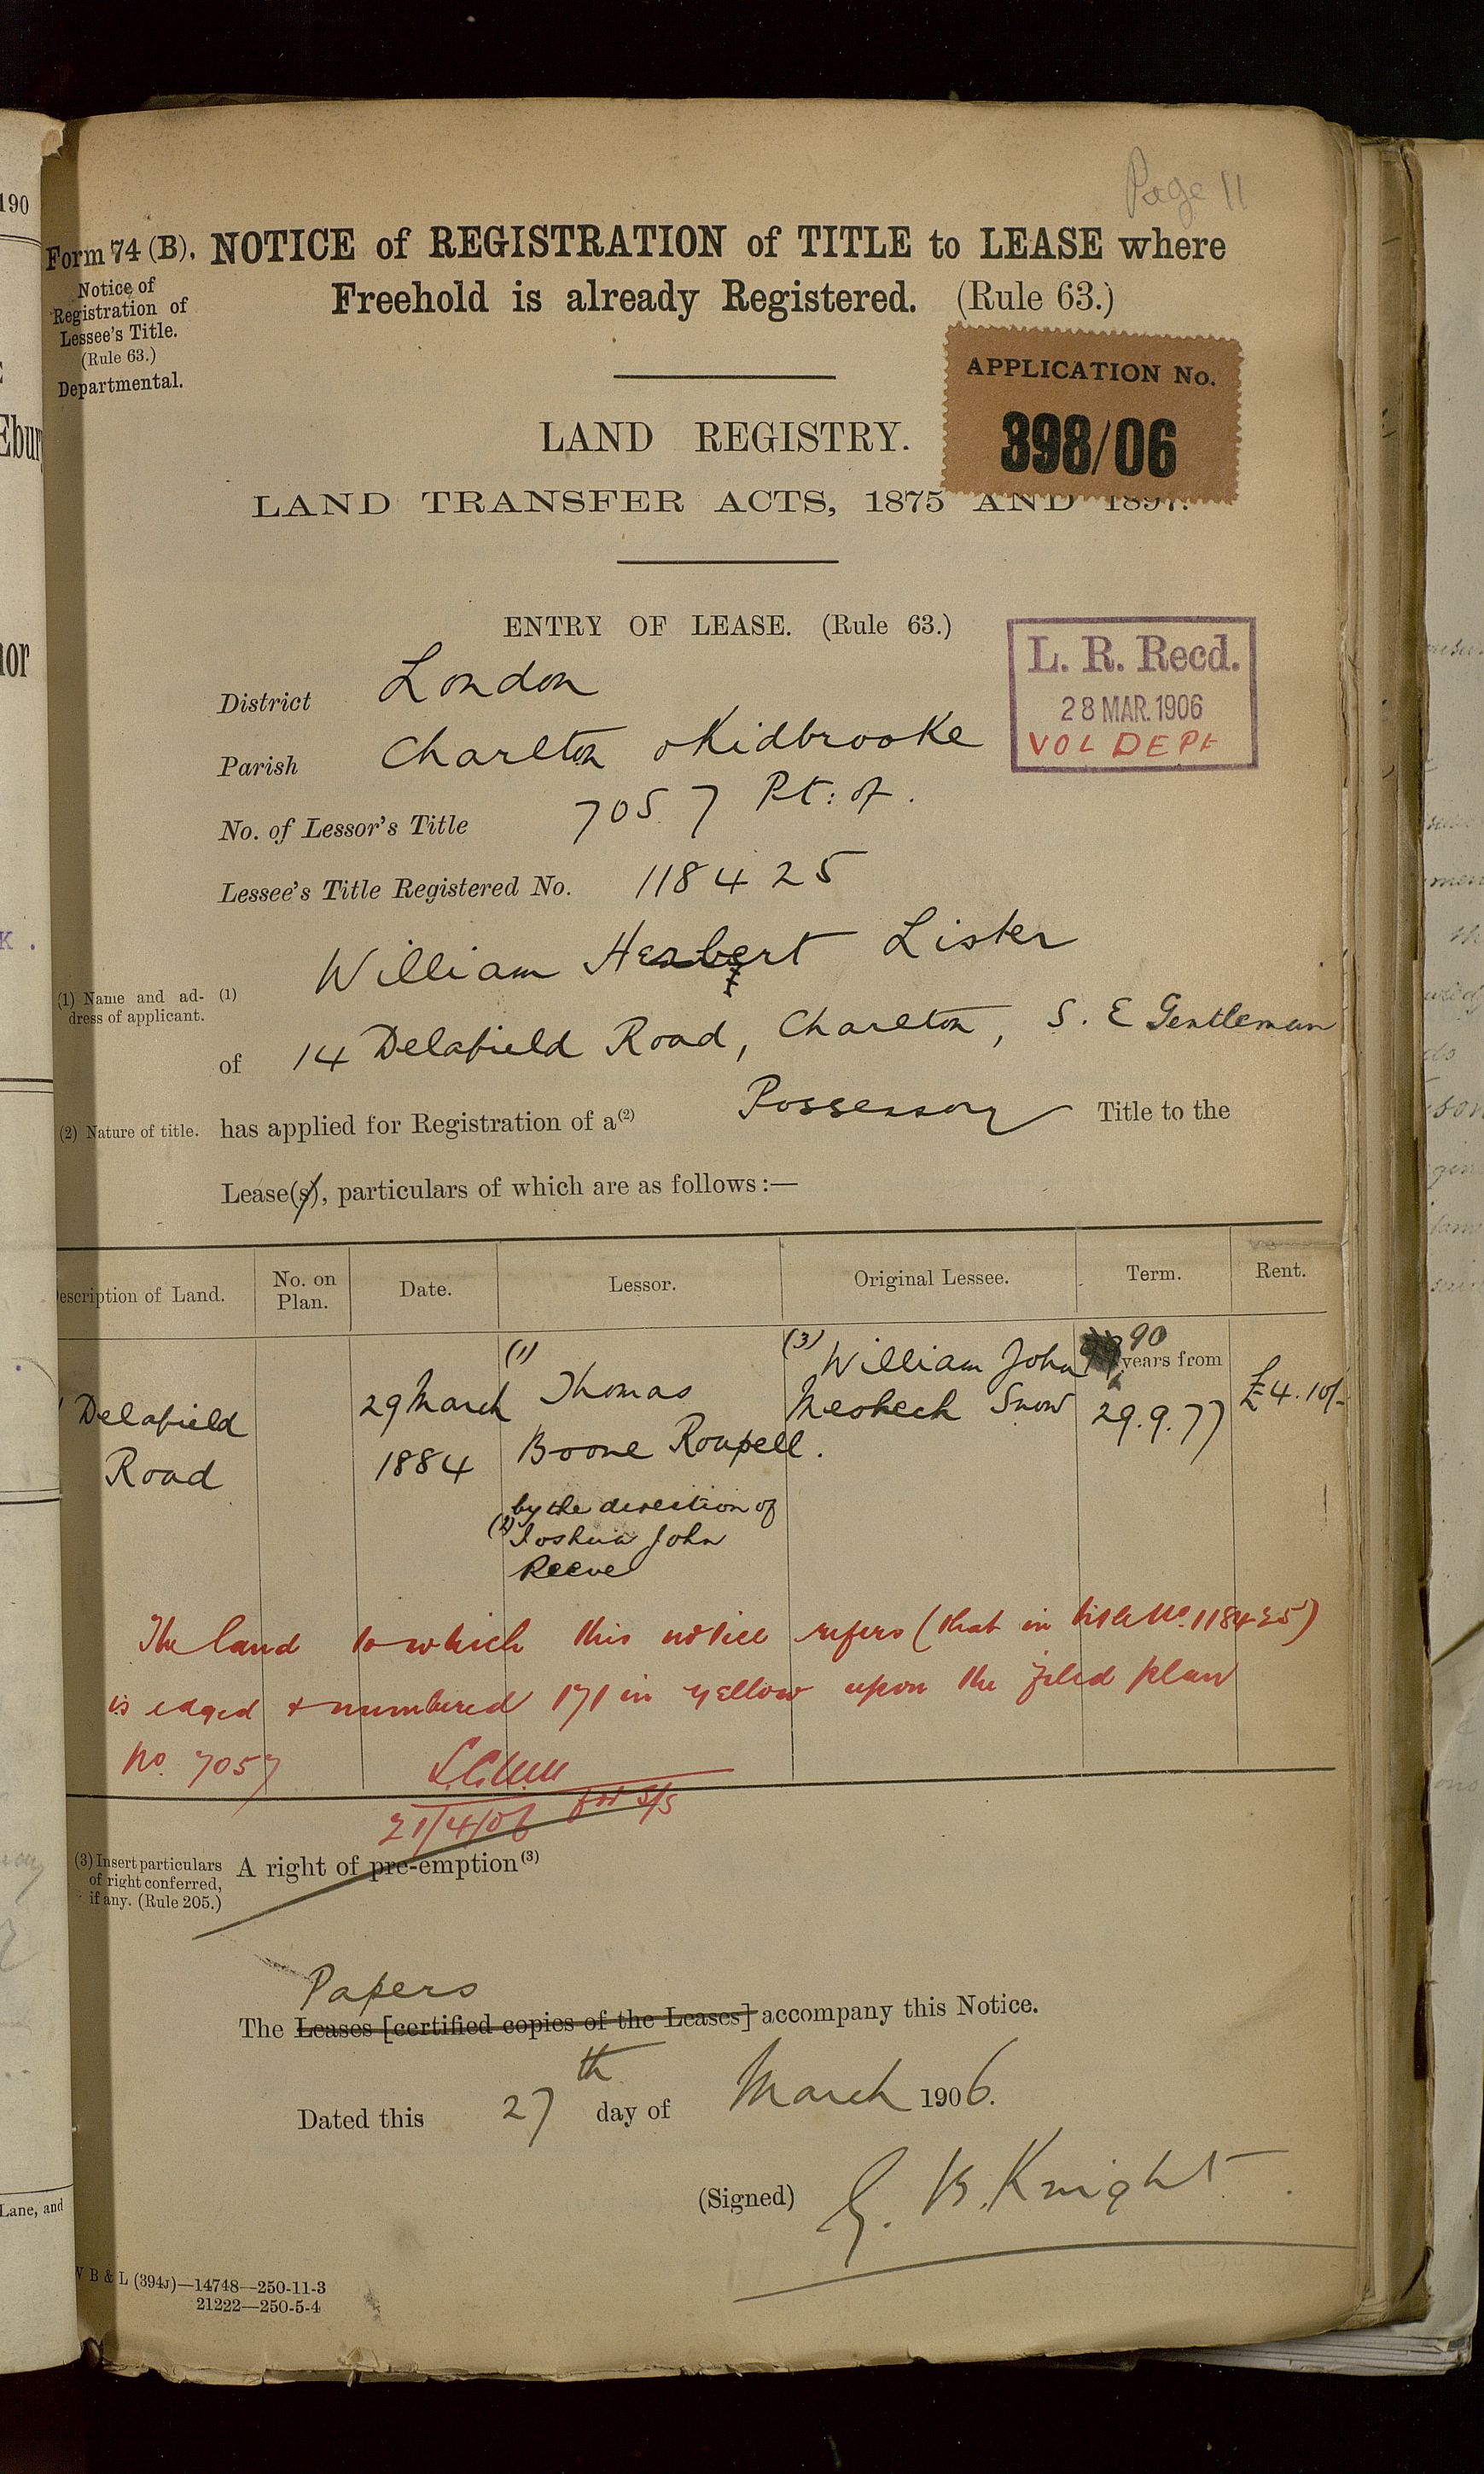 Page 11
Form 74 (B). NOTICE of REGISTRATION of TITLE to LEASE where
Freehold is already Registered. (Rule 63.)
Notice of
Registration of
Lessee's Title.
(Rule 63.)
Departmental.
APPLICATION No.
898/06
LAND REGISTRY.
LAND TRANSFER ACTS, 1875 AND 1897.
ENTRY OF LEASE. (Rule 63.)
L. R. Recd.
28 MAR. 1906
VOL DEPt
District London
Parish Charlton & Kidbrooke
No. of Lessor's Title 7057 Pt: of.
Lessee's Title Registered No. 118425
William Herbert Lister
(1) Name and ad-
dress of applicant.
(1)
of 14 Delafield Road, Charlton, S. E Gentleman
(2) Nature of title. has applied for Registration of a(2) Possessory Title to the
Lease(s), particulars of which are as follows:—
Description of Land. No. on Plan. Date. Lessor. Original Lessee. Term. Rent.
Delafield
Road
29 March
1884
(1) Thomas
Boone Roupell.
by the direction of
(2) Joshua John
Reeve
(3) William John
Mesheck Snow
90
years from
29.9.77
£4.10/-
The land to which this notice refers (that in title No. 118425)
is edged & numbered 171 in yellow upon the filed plan
No. 7057
21/4/06 for S/S
(3) Insert particulars
of right conferred,
if any. (Rule 205.)
A right of pre-emption(3)
Papers
The Leases [certified copies of the Leases] accompany this Notice.
Dated this 27th day of March 1906.
(Signed) G. B. Knight
W B & L (394J)—14748—250-11-3
21222—250-5-4
190
Ebury
K.
Lane, and